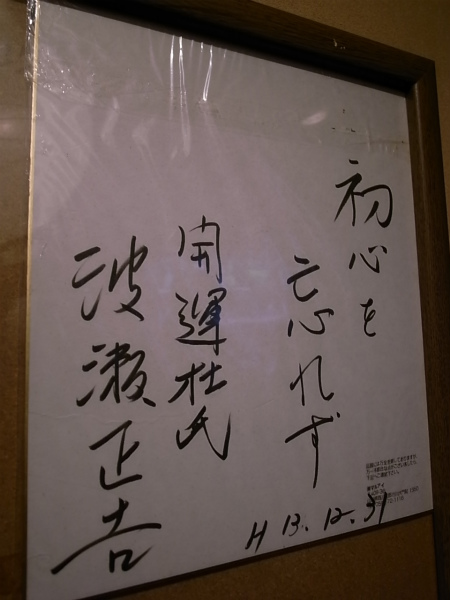 初心を
忘れず
開運杜氏
波瀬正吉
H 13.12.31